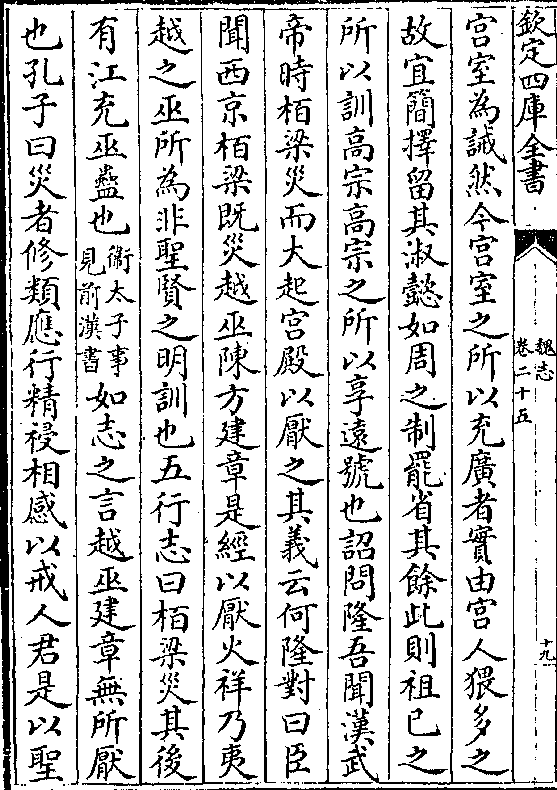 欽定四庫全書
魏志
卷二十五
十九
宫室為誡然今宫室之所以充廣者實由宫人猥多之
故宜簡擇留其淑懿如周之制罷省其餘此則祖已之
所以訓高宗高宗之所以享遠號也詔問隆吾聞漢武
帝時栢梁災而大起宫殿以厭之其義云何隆對曰臣
聞西京栢梁既災越巫陳方建章是經以厭火祥乃夷
越之巫所為非聖賢之明訓也五行志曰栢梁災其後
有江充巫蠱也衛太子事見前漢書如志之言越巫建章無所厭
也孔子曰災者修類應行精祲相感以戒人君是以聖